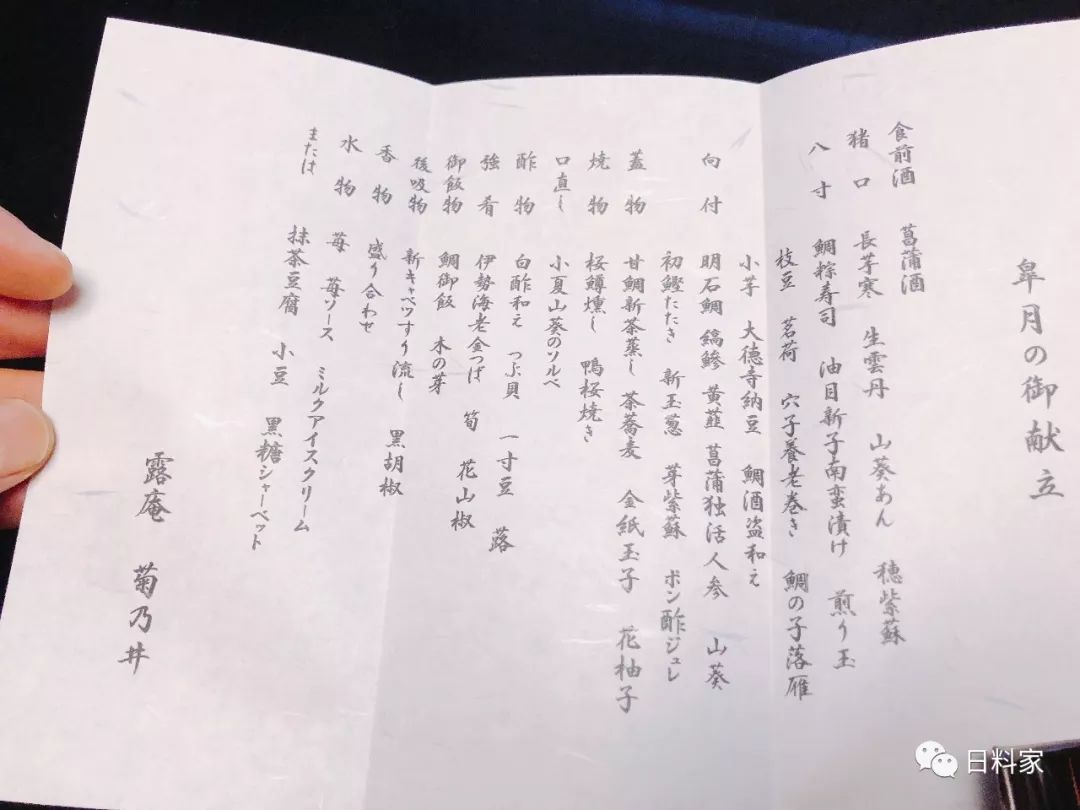 皐月の御献立
食前酒 菖蒲酒
猪口 長芋寒 生雲丹 山葵あん 穂紫蘇
八寸 鯛粽寿司 油目新子南蛮漬け 煎り玉
枝豆 茗荷 穴子養老巻き 鯛の子落雁
小芋 大徳寺納豆 鯛酒盗和え
向付 明石鯛 縞鯵 黄韮 菖蒲独活人参 山葵
初鰹たたき 新玉葱 芽紫蘇 ポン酢ジュレ
蓋物 甘鯛新茶蒸し 茶蕎麦 金紙玉子 花柚子
焼物 桜鱒燻し 鴨桜焼き
口直し 小夏山葵のソルベ
酢物 白酢和え つぶ貝 一寸豆 蕗
強肴 伊勢海老金つば 筍 花山椒
御飯物 鯛御飯 木の芽
後吸物 新キャベツすり流し 黒胡椒
香物 盛り合わせ
水物 苺 苺ソース ミルクアイスクリーム
または 抹茶豆腐 小豆 黒糖シャーベット
露庵 菊乃井
日料家